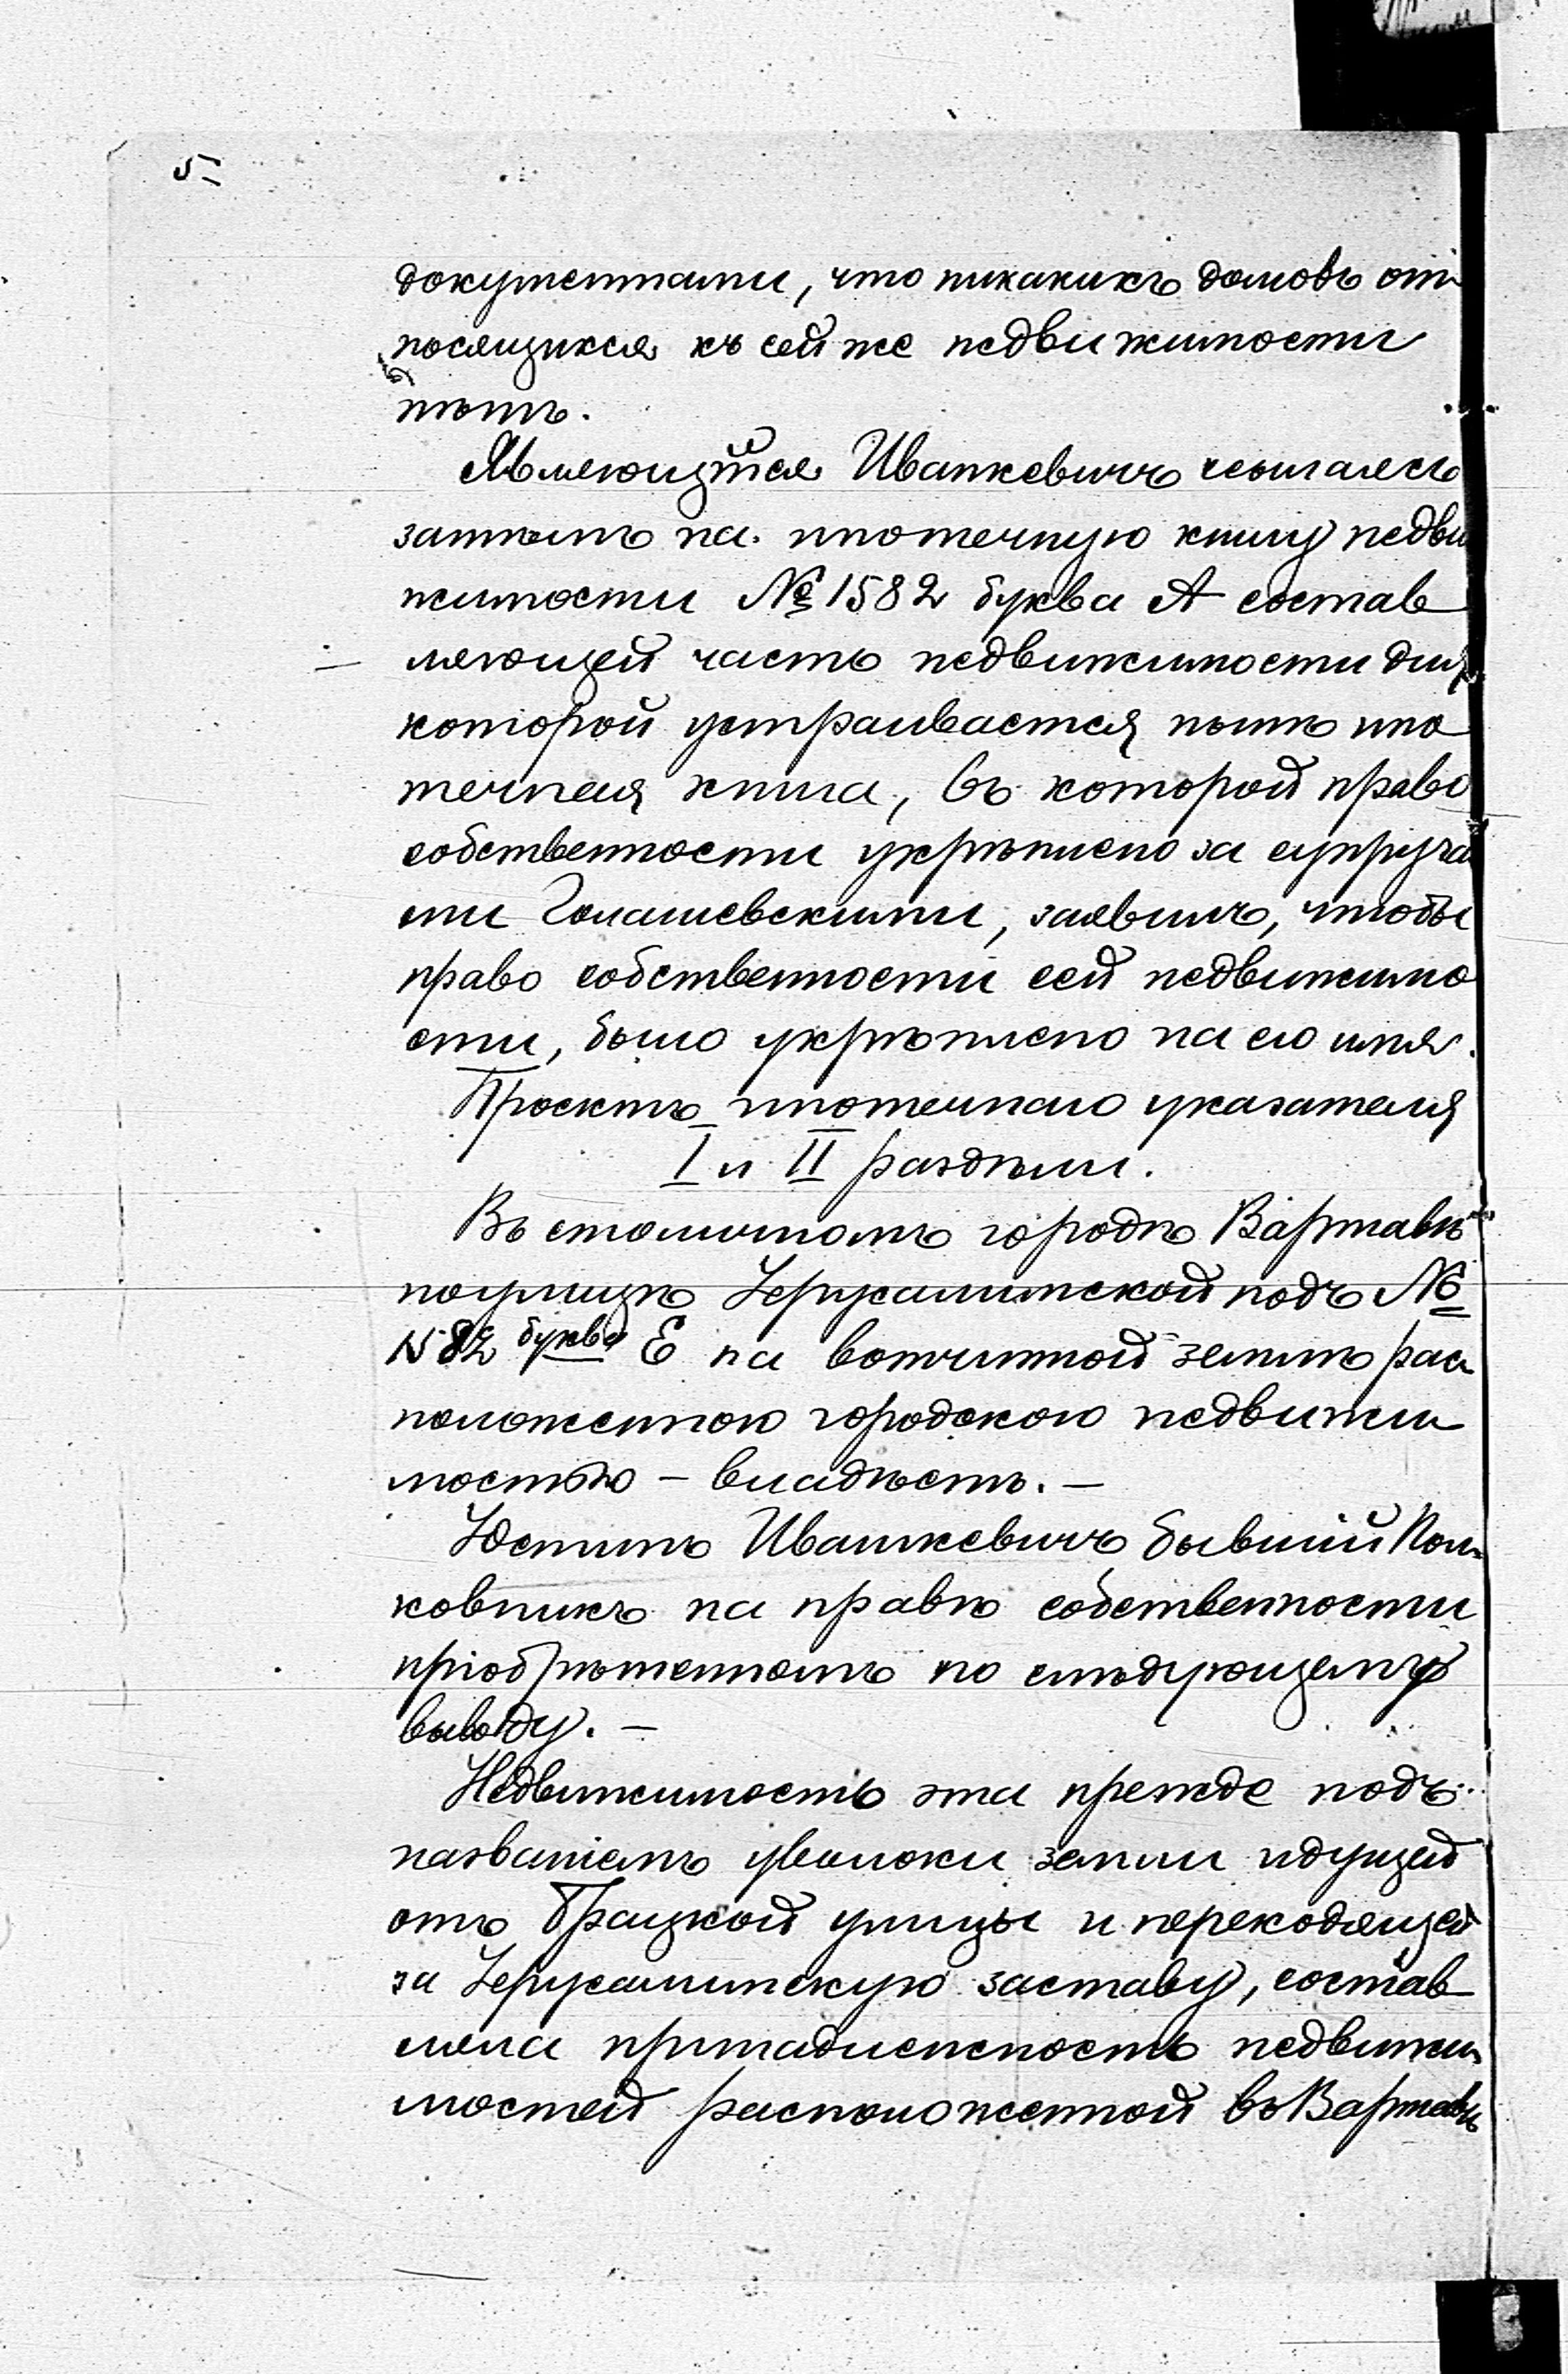 5
документами, что никакихъ домовъ от
носящихся къ сей же недвижимости
нѣтъ.
Являющійся Ивашкевичъ ссылаясь
затѣмъ на ипотечную книгу недви
жимости № 1582 буква А состав
ляющей часть недвижимости для
которой устраивается нынѣ ипо
течная книга, въ которой право
собственности укрѣплено за супруга
ми Голашевскими, заявилъ, чтобы
право собственности сей недвижимо
сти, было укрѣплено на его имя.
Проектъ ипотечнаго указателя
I и II раздѣлы.
Въ столичномъ городѣ Варшавѣ
по улицѣ Іерусалимской подъ №
1582 буква Е на вотчинной землѣ рас
положенною городскою недвижи
мостью – владѣетъ. –
Юстинъ Ивашкевичъ бывшій Пол
ковникъ на правѣ собственности
пріобрѣтенномъ по слѣдующему
выводу. –
Недвижимость эта прежде подъ
названіемъ уволоки земли идущей
отъ Брацкой улицы и переходящей
за Іерусалимскую заставу, состав
ляла принадлежность недвижи
мостей расположенной въ Варшавѣ